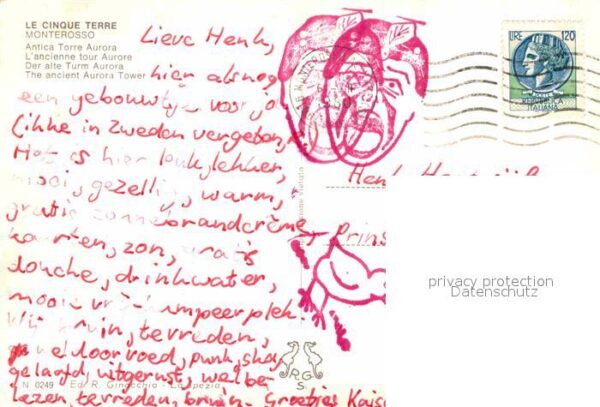 LE CINQUE TERRE
MONTEROSSO
Antica Torre Aurora
L'ancienne tour Aurore
Der alte Turm Aurora
The ancient Aurora Tower
Lieve Henk,
hier alsnog
een gebouwtje voor jou
in Zweden vergeten
Het is hier leuk, lekker,
mooi, gezellig, warm,
gratis zonnebrandcrème,
kaarten, zon, gratis
douche, drinkwater,
mooie vrij kampeerplek.
Wij bruin, tevreden,
doorvoed, punk,
gelaafd, uitgerust, wel be
lezen, tevreden, bruin. Groetjes
N 0249 Ed. R. Ginocchio - La Spezia
RG
S
LIRE 120
REPUBBLICA
ITALIANA
Henk
Prins
privacy protection
Datenschutz